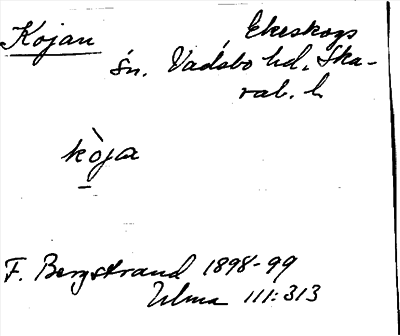 Kojan
Ekeskogs
sn. Vadsbo hd. Ska-
rab. l.
kòja
F. Bergstrand 1898-99
Ulma 111:313